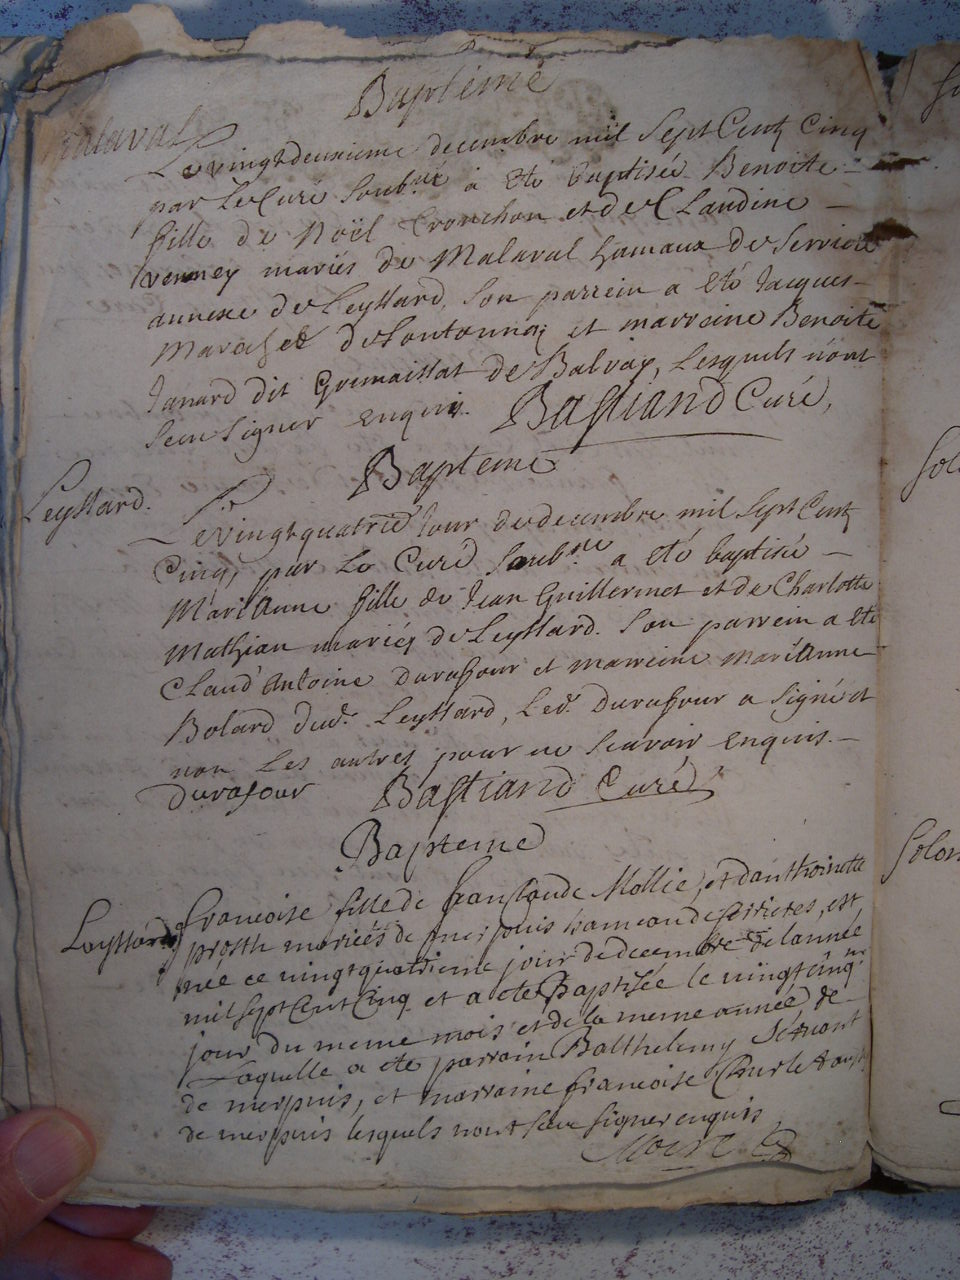 Bapteme
Malaval
Le vingtdeuxieme decembre mil Sept Centz Cinq
par Le Curé Soub.né a eté baptisée Benoite
fille de Noël Cronchon et de Claudine
venney mariés de Malaval hamaux de Serriere
annexe de Leyssard, Son parrein a eté Jacques
de et marreine Benoite
Janard dit de Balvay, Lesquels n'ont
Sceu Signer enquis. Bastiand Curé,
Bapteme
Leyssard.
Le vingtquatrie Jour de decembre mil Sept Centz
Cinq, par Le Curé Soub.né a eté baptisée
Mari Anne fille de Jean Guillermet et de Charlotte
Mathian mariés de Leyssard. Son parrein a eté
Claud'Antoine Durafour et marreine Mari Anne
Bolard dud. Leyssard, Led. Durafour a Signé et
non Les autres pour ne Scavoir enquis.
Durafour Bastiand Curé
Bapteme
Leyssard
francoise fille de françlaude Mollie, et danthoinette
prosth mariés de merpuis hameau de serrieres, est
née ce vingtquatrieme jour de decembre de lannée
mil sept Cent Cinq et a eté Baptisée le vingt cinq.me
jour du meme mois et de la meme année de
Laquelle a eté parrain Balthelemy
de merpuis, et marraine francoise
de merpuis lesquels nont sceu signer enquis